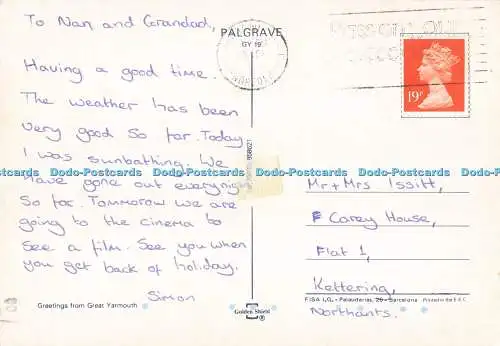 To Nan and Grandad,
Having a good time.
The weather has been
very good so far. Today
I was sunbathing. We
have gone out everynight
So far. Tomorrow we are
going to the cinema to
See a film. See you when
you get back of holiday.
Simon
Greetings from Great Yarmouth
PALGRAVE
GY 19
NORFOLK
19P
Mr + Mrs Issitt,
Carey House,
Flat 1,
Kettering,
Northants.
Golden Shield
FISA I.G. - Palaudarias, 26 - Barcelona Printed in the E.E.C.
Dodo-Postcards Dodo-Postcards Dodo-Postcards Dodo-Postcards Dodo-Postcards Dodo-Postcards